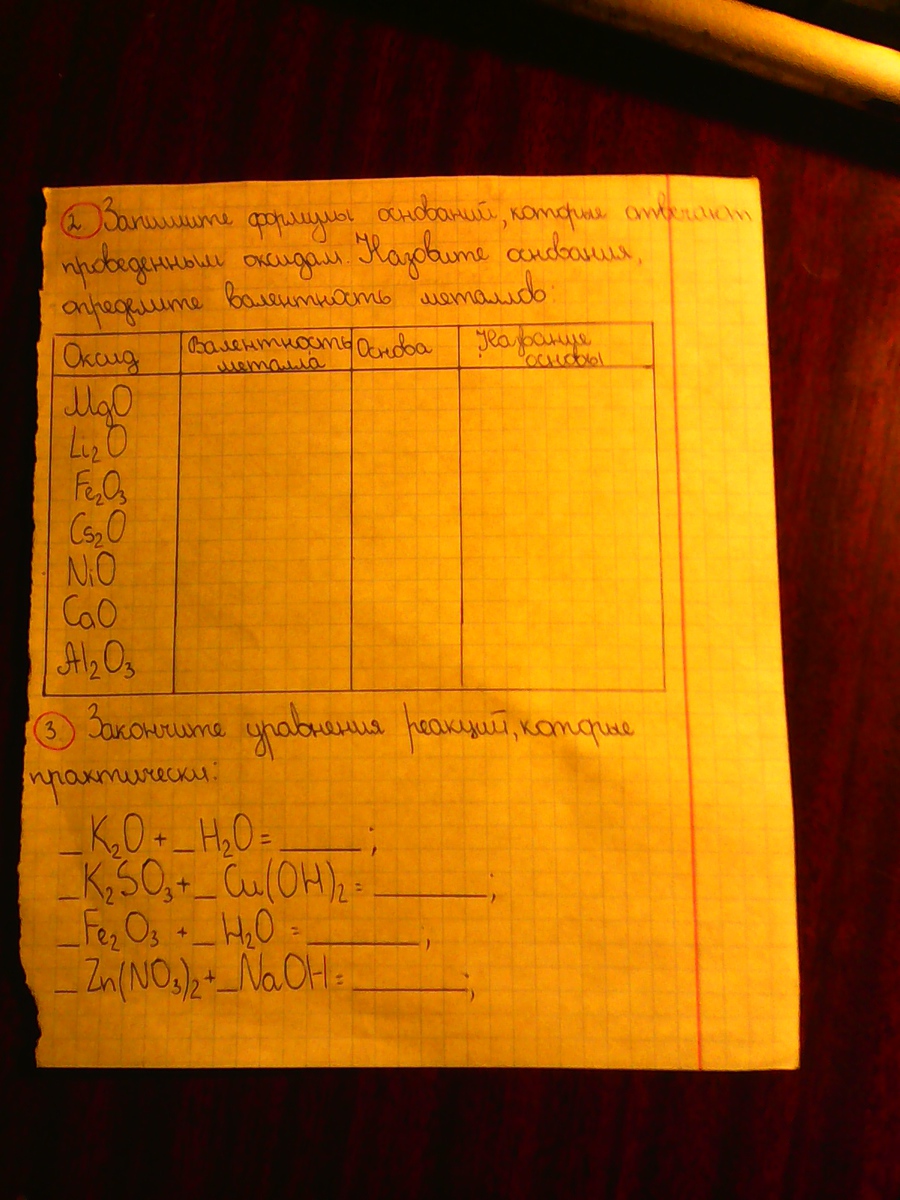 2 Запишите формулы оснований, которые отвечают
проведенным оксидам. Назовите основания,
определите валентность металлов:
Оксид Валентность металла Основа Название основы
MgO
Li₂O
Fe₂O₃
Cs₂O
NiO
CaO
Al₂O₃
3 Закончите уравнения реакций, которые
практически:
_ K₂O + _ H₂O = _____ ;
_ K₂SO₃ + _ Cu(OH)₂ = _______ ;
_ Fe₂O₃ + _ H₂O = _______ ;
_ Zn(NO₃)₂ + _ NaOH = _______ ;